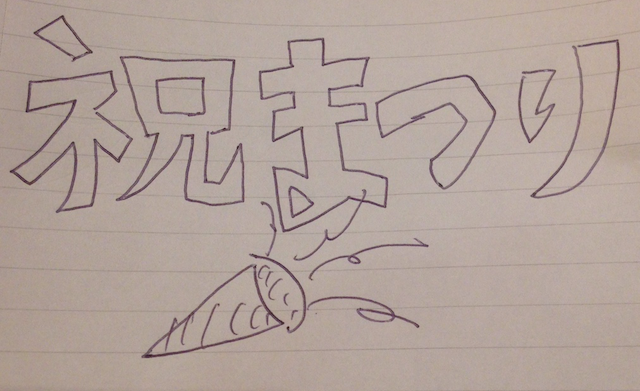 祝まつり